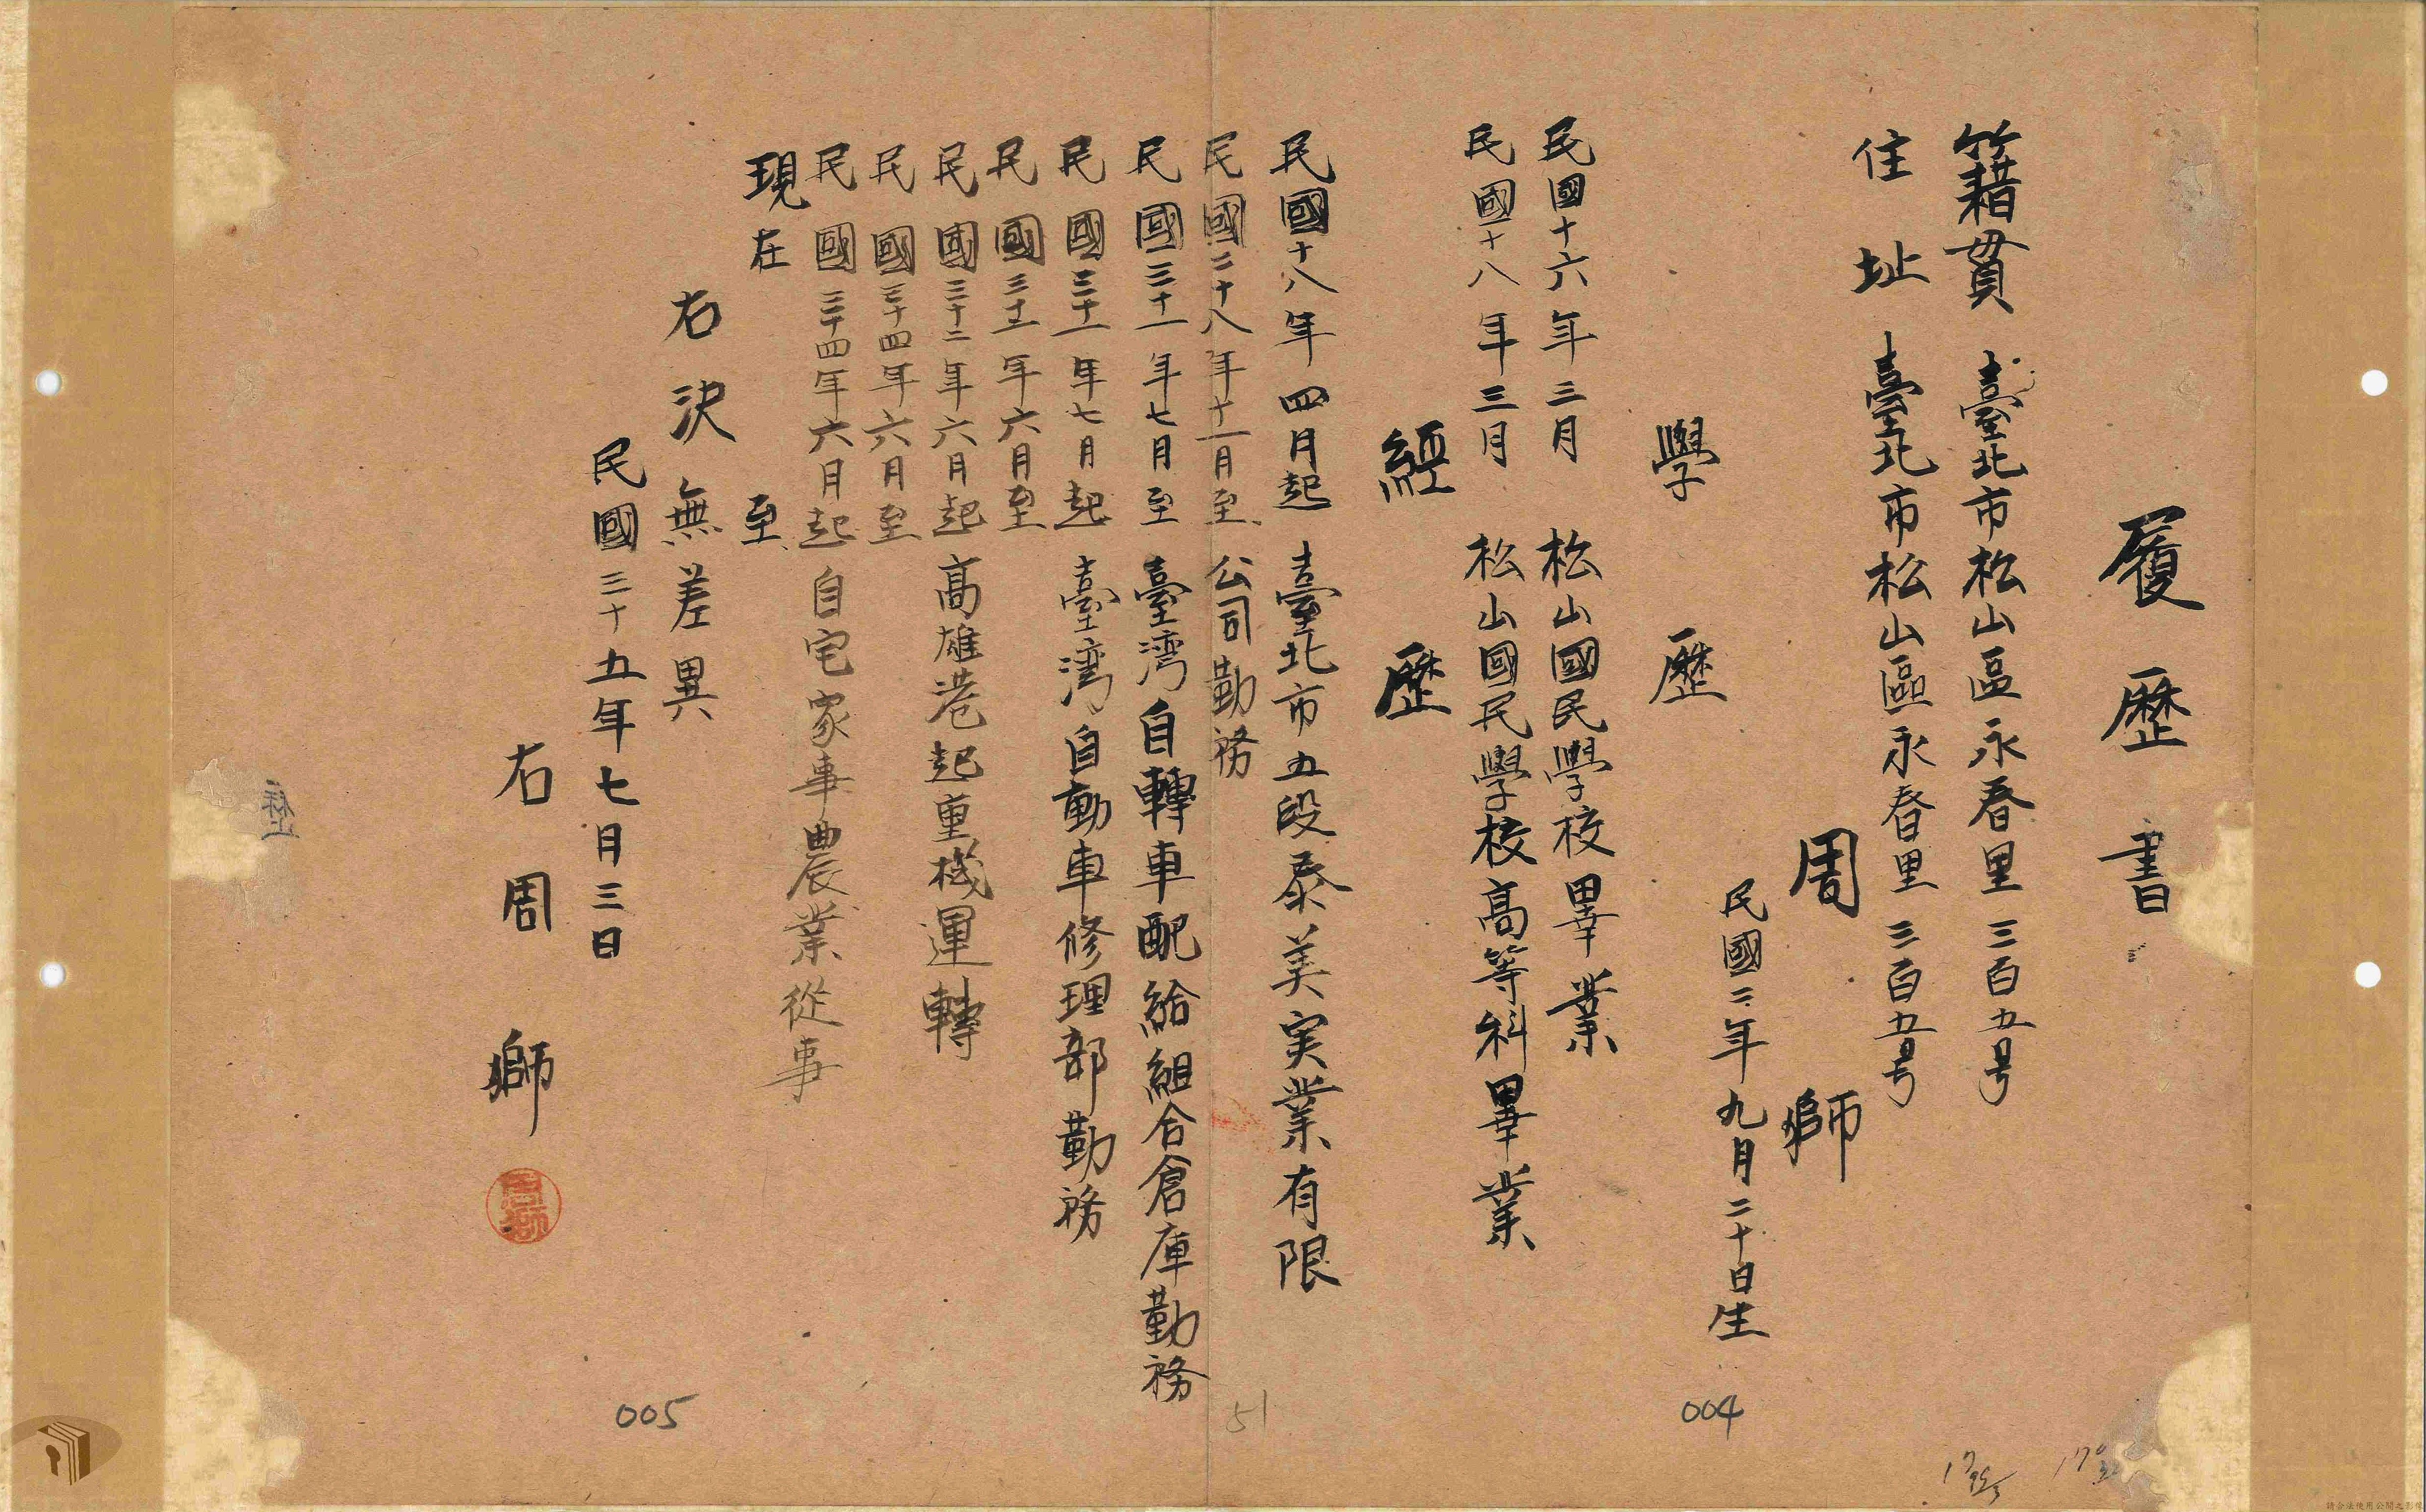 履歷書
籍貫 臺北市松山區永春里三百五号
住址 臺北市松山區永春里三百五号
周獅
民國二年九月二十日生
學歷
民國十六年三月 松山國民學校畢業
民國十八年三月 松山國民學校高等科畢業
經歷
民國十八年四月起 臺北市五段泰美実業有限
民國二十八年十一月至 公司勤務
民國三十一年七月至 臺灣自轉車配給組合倉庫勤務
民國三十一年七月起 臺灣自動車修理部勤務
民國三十二年六月至
民國三十二年六月起 高雄港起重機運轉
民國三十四年六月至
民國三十四年六月起 自宅家事農業從事
現在至
右決無差異
民國三十五年七月三日
右周獅
周獅
004
51
005